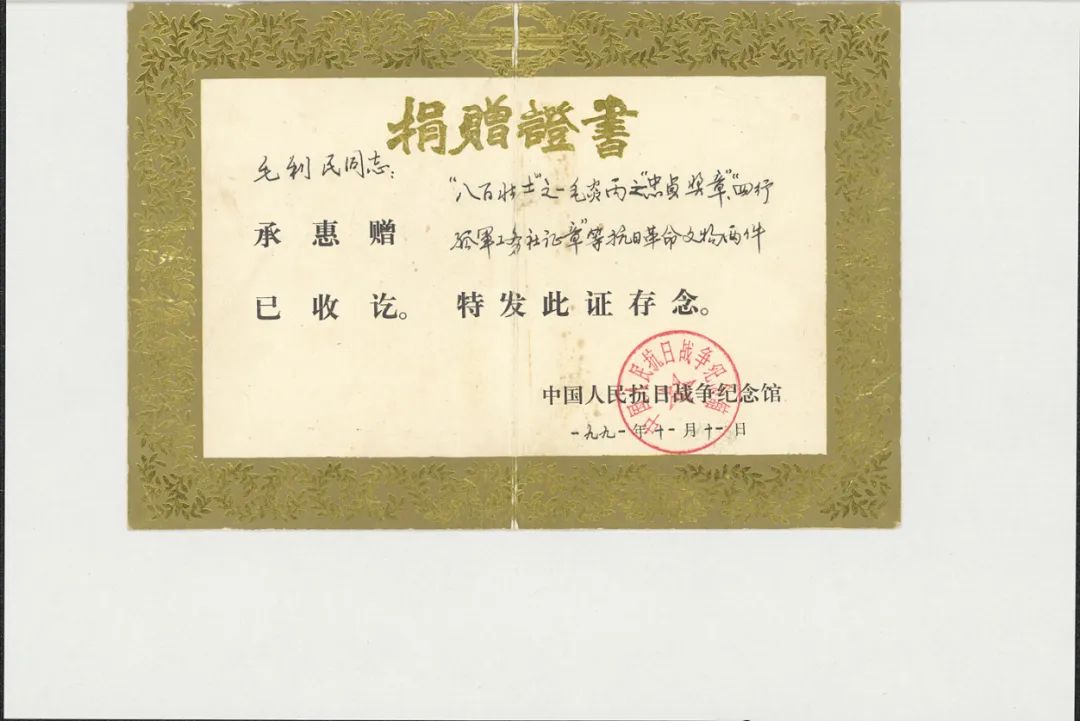 捐赠證書
毛利民同志：
承惠赠 “八百壮士”之一毛炎丙之“忠贞奖章”“四行
孤军工务社证章”等抗日革命文物两件
已收讫。特发此证存念。
中国人民抗日战争纪念馆
一九九一年十一月十一日
中国人民抗日战争纪念馆